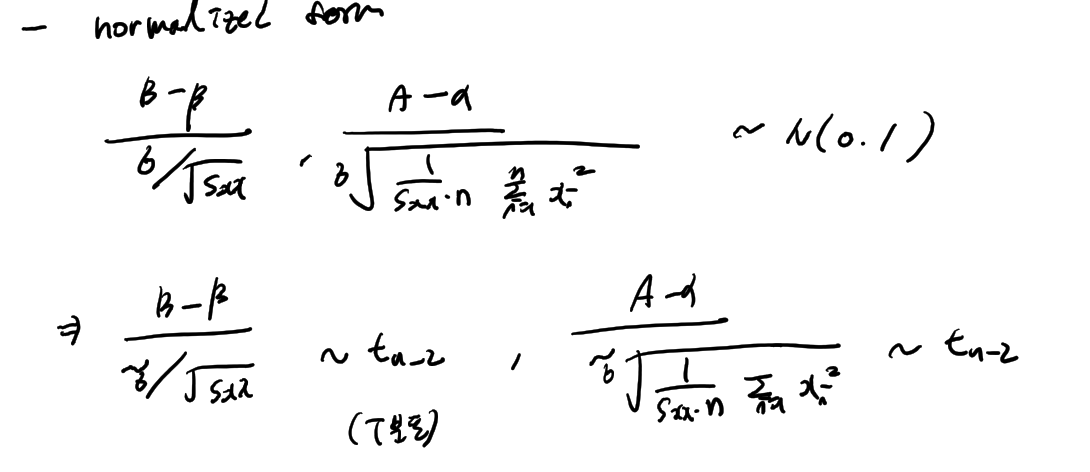 - normalized form
B-β / (σ/√Sxx) , A-α / (σ√(1/(Sxx·n) Σ_{i=1}^{n} x_i²)) ~ N(0.1)
⇒ B-β / (σ̃/√Sxx) ~ t_{n-2} , A-α / (σ̃√(1/(Sxx·n) Σ_{i=1} x_i²)) ~ t_{n-2}
(T분포)